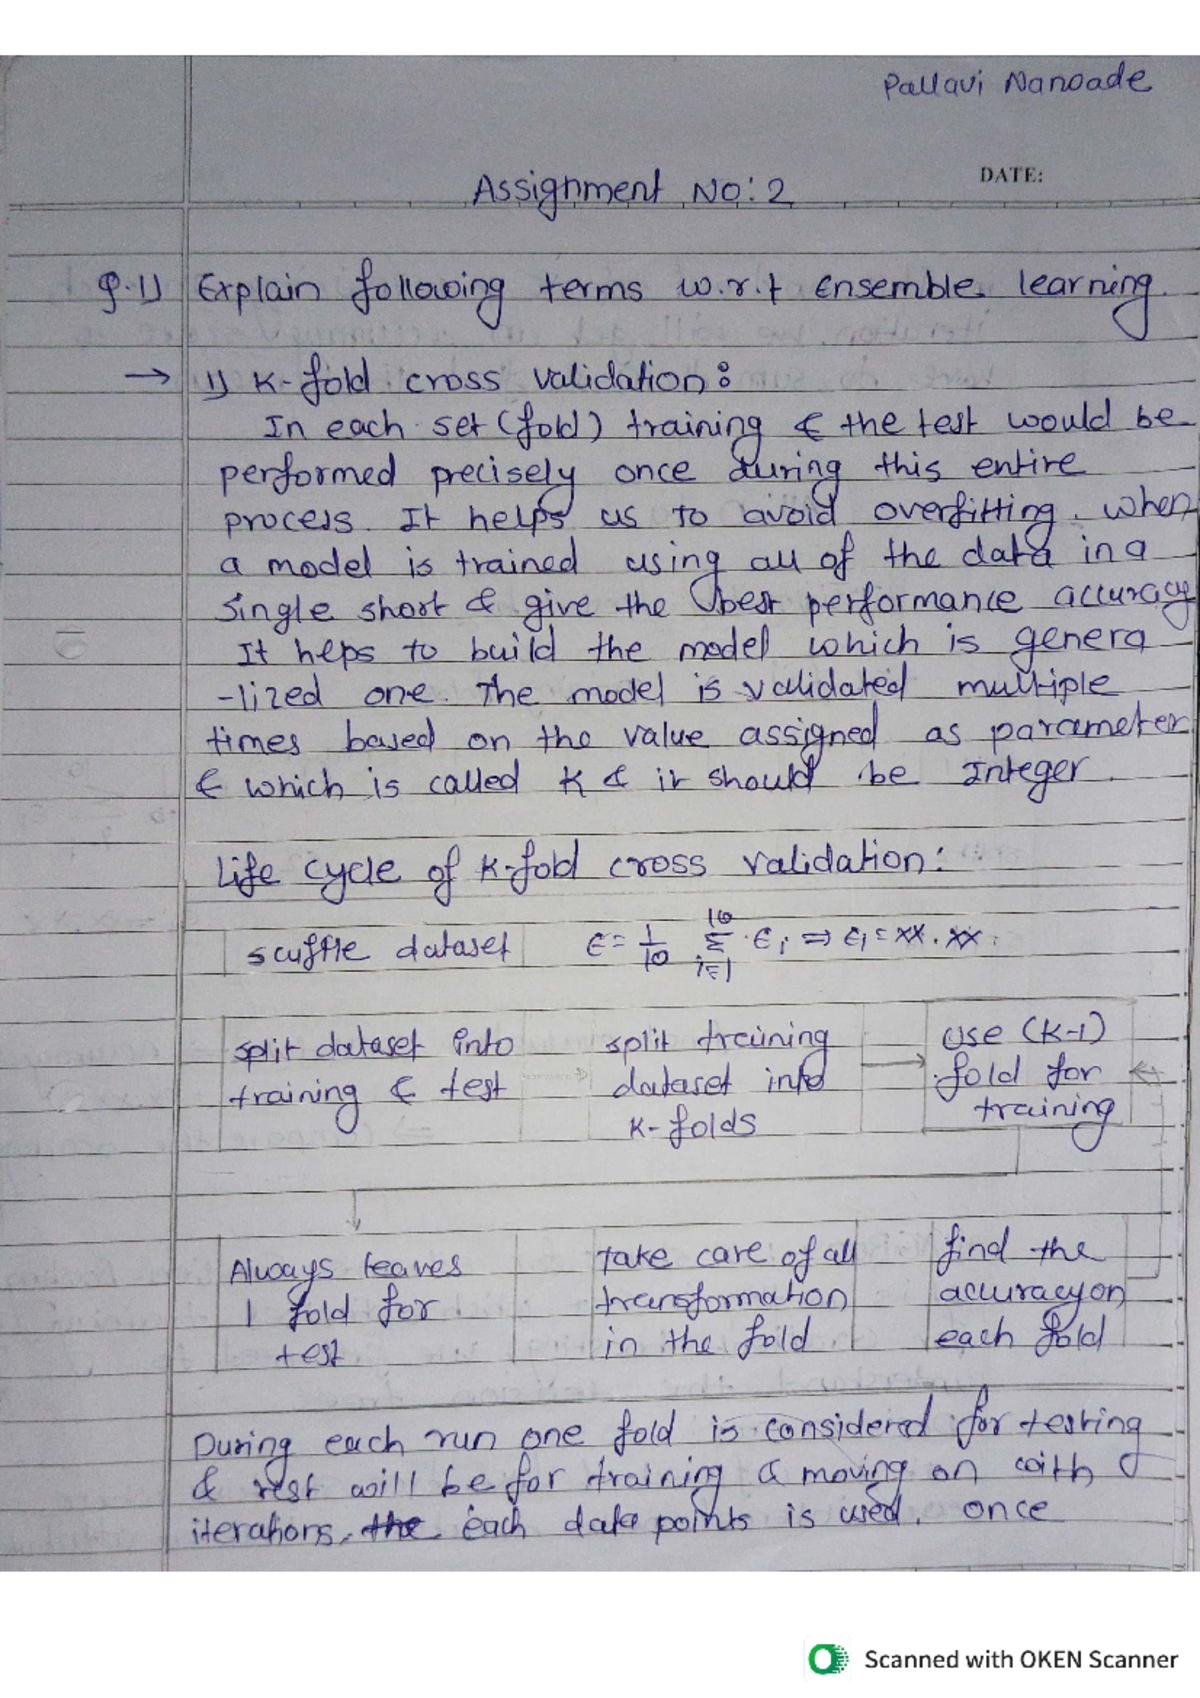 Pallavi Nanoade
DATE:
Assignment No: 2
Q.1) Explain following terms w.r.t Ensemble learning.
→ 1) K-fold cross validation:
In each set (fold) training & the test would be
performed precisely once during this entire
process. It helps us to avoid overfitting. when
a model is trained using all of the data in a
single short & give the best performance accuracy
It heps to build the model which is genera
-lized one. The model is validated multiple
times based on the value assigned as parameter
& which is called K & it should be Integer.
Life cycle of K-fold cross validation:
scuffle dataset E = 1/10 10 Σ i=1 . Ei ⇒ E1 = xx.xx
split dataset into
training & test
split training
dataset into
K-folds
use (K-1)
fold for
training
Always leaves
1 fold for
test
take care of all
transformation
in the fold
find the
accuracy on
each fold
During each run one fold is considered for testing
& rest will be for training & moving on with
iterations, the each data points is used. once
Scanned with OKEN Scanner